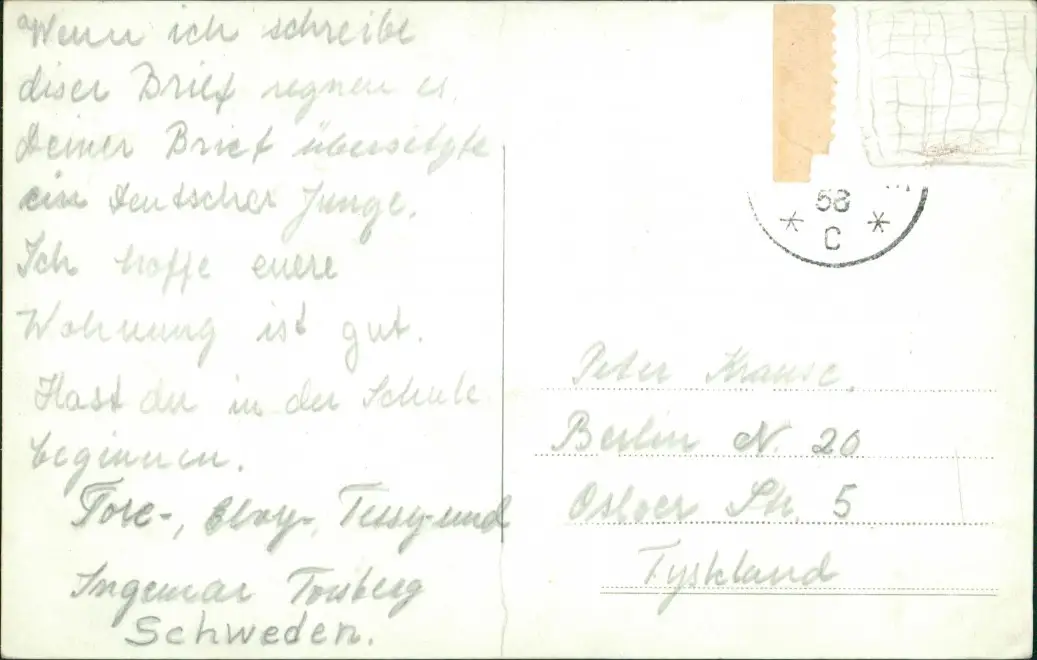 Wenn ich schreibe
diser Brief regnen es.
Deiner Brief übersetzte
ein Deutscher Junge.
Ich hoffe euere
Wohnung ist gut.
Hast du in der Schule
beginnen.
Tore-, Elvy-, Tussy-und
Ingemar Torsberg
Schweden.
58
* C *
Peter Krause.
Berlin N. 20
Osloer Str. 5
Tyskland